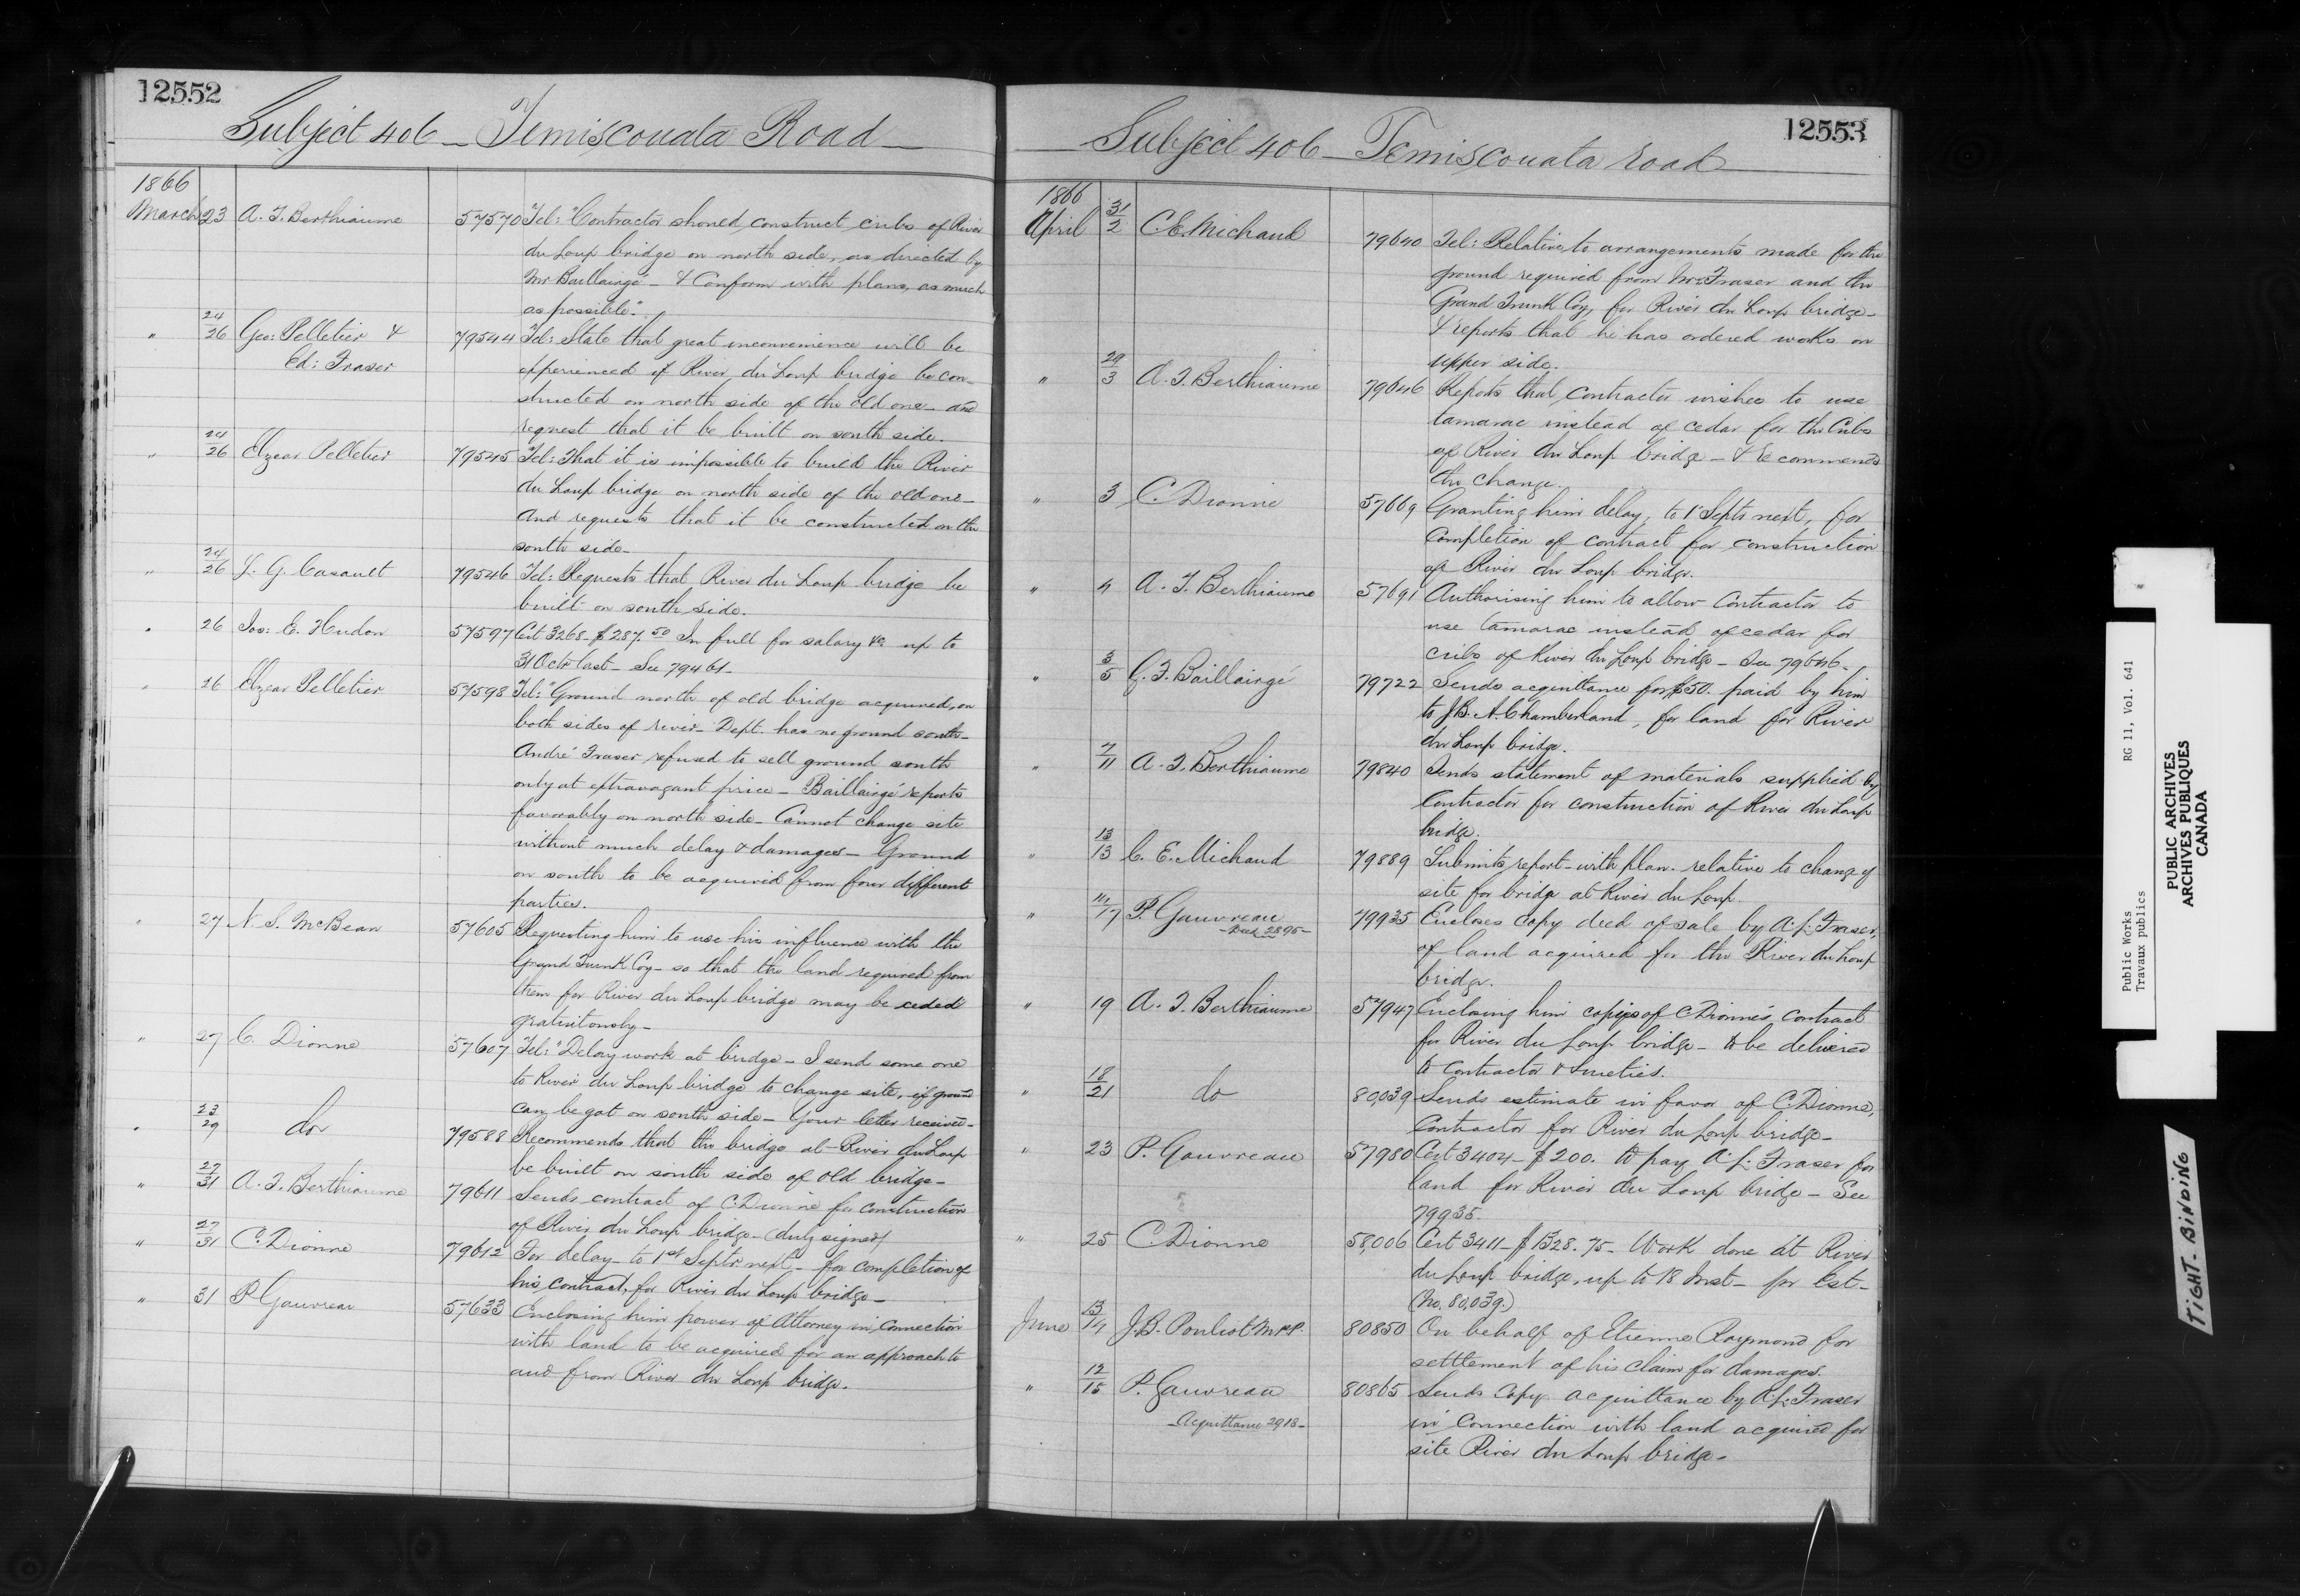 12552
Subject 406 – Temiscouata Road –
1866
March 23 A. T. Berthiaume 57570 Tel: "Contractor should construct cribs of River
du Loup bridge on north side, as directed by
Mr Baillairgé – & Conform with plans, as much
as possible".
" 24/26 Geo: Pelletier & 79544 Tel: State that great inconvenience will be
Ed: Fraser experienced if River du Loup bridge be con-
structed on north side of the old one – and
request that it be built on south side.
" 24/26 Elzear Pelletier 79545 Tel: That it is impossible to build the River
du Loup bridge on north side of the old one –
And requests that it be constructed on the
south side –
" 24/26 J. G. Casault 79546 Tel: Requests that River du Loup bridge be
built on south side.
" 26 Jos: E. Hudon 57597 Cert 3268 – $287.50 In full for salary &c up to
31 Octr last – See 79461 –
" 26 Elzear Pelletier 57598 Tel: "Ground north of old bridge acquired, on
both sides of river – Dept. has no ground south –
André Fraser refused to sell ground south
only at extravagant price – Baillairgé reports
favorably on north side – Cannot change site
without much delay & damages – Ground
on south to be acquired from four different
parties.
" 27 N. S. McBean 57605 Requesting him to use his influence with the
Grand Trunk Coy – so that the land required from
them for River du Loup bridge may be ceded
gratuitously –
" 27 C. Dionne 57607 Tel: "Delay work at bridge – I send some one
to River du Loup bridge to change site, if ground
can be got on south side – Your letter received –
" 23/29 do 79588 Recommends that the bridge at River du Loup
be built on south side of old bridge –
" 27/31 A. T. Berthiaume 79611 Sends contract of C. Dionne for construction
of River du Loup bridge – (duly signed)
" 27/31 C. Dionne 79612 For delay to 1st Septr next – for completion of
his contract, for River du Loup bridge –
" 31 P. Gauvreau 57633 Enclosing him power of Attorney in connection
with land to be acquired for an approach to
and from River du Loup bridge.
12553
Subject 406 – Temiscouata road
1866
April 31/2 C. E. Michaud 79640 Tel: Relative to arrangements made for the
ground required from Mr Fraser and the
Grand Trunk Coy, for River du Loup bridge –
& reports that he has ordered works on
upper side.
" 29/3 A. T. Berthiaume 79646 Reports that contractor wishes to use
tamarac instead of cedar for the Cribs
of River du Loup bridge – & recommends
the change.
" 3 C. Dionne 57669 Granting him delay, to 1 Septr next, for
Completion of contract for construction
of River du Loup bridge.
" 4 A. T. Berthiaume 57691 Authorising him to allow Contractor to
use tamarac instead of cedar for
cribs of River du Loup bridge – See 79646 –
" 3/5 G. F. Baillairgé 79722 Sends acquittance for $50. paid by him
to J. B. A. Chamberland, for land for River
du Loup bridge.
" 7/11 A. T. Berthiaume 79840 Sends statement of materials supplied by
Contractor for construction of River du Loup
bridge.
" 13/13 C. E. Michaud 79889 Submits report – with plan – relative to change of
site for bridge at River du Loup.
" 14/17 P. Gauvreau 79935 Encloses Copy deed of sale by A. L. Fraser,
– Deed 2895 – of land acquired for the River du Loup
bridge.
" 19 A. T. Berthiaume 57947 Enclosing him copies of C Dionne's contract
for River du Loup bridge – to be delivered
to Contractor & Sureties.
" 18/21 do 80,039 Sends estimate in favor of C. Dionne,
Contractor for River du Loup bridge –
" 23 P. Gauvreau 57980 Cert 3404 – $200. to pay A. L. Fraser for
land for River du Loup bridge – See
79935.
" 25 C. Dionne 58,006 Cert 3411 – $1328.75 – Work done at River
du Loup bridge, up to 18 Inst – pr Est –
(No. 80,039.)
June 13/14 J. B. Pouliot M.P.P. 80850 On behalf of Etienne Raymond for
settlement of his claim for damages.
" 12/15 P. Gauvreau 80865 Sends Copy acquittance by A. L. Fraser
– Acquittance 2918 – in connection with land acquired for
site River du Loup bridge –
Public Works RG 11, Vol. 641
Travaux publics
PUBLIC ARCHIVES
ARCHIVES PUBLIQUES
CANADA
TIGHT-BINDING